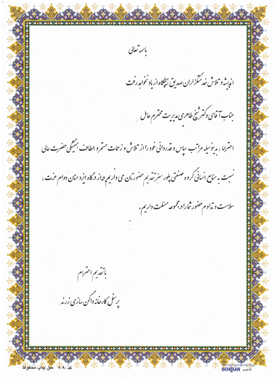 باسمه تعالی
اندیشه و تلاش خدمتگزاران صدیق هیچگاه از یاد نخواهد رفت
جناب آقای دکتر شیخ طاهری مدیریت محترم عامل
احتراما ، بدینوسیله مراتب سپاس و قدردانی خود را از تلاش و زحمات مستمر و الطاف همیشگی حضرت عالی
نسبت به منابع انسانی گروه صنعتی پلور سبز تقدیم حضورتان می داریم و از درگاه ایزد منان دوام عزت ،
سلامت و تداوم حضور شما را در مجموعه مسئلت داریم .
با تقدیم احترام
پرسنل کارخانه واگن سازی زرند
کد ۲۰۹ حق چاپ محفوظ
BORJIAN